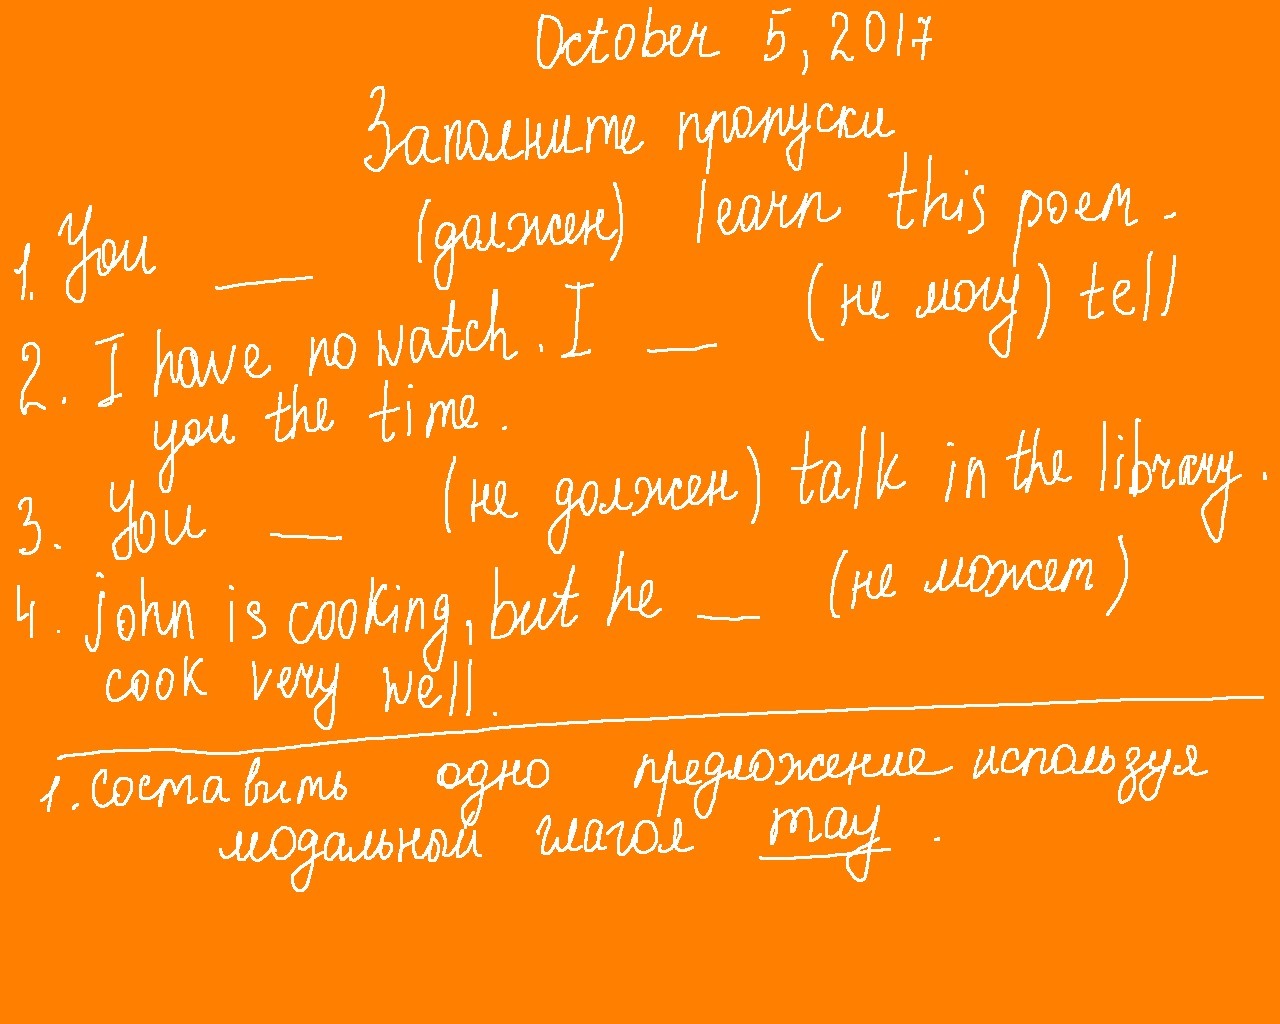 October 5, 2017
Заполните пропуски
1. You __ (должен) learn this poem.
2. I have no watch. I __ (не могу) tell
you the time.
3. You __ (не должен) talk in the library.
4. john is cooking, but he __ (не может)
cook very well.
1. составить одно предложение используя
модальный глагол may.